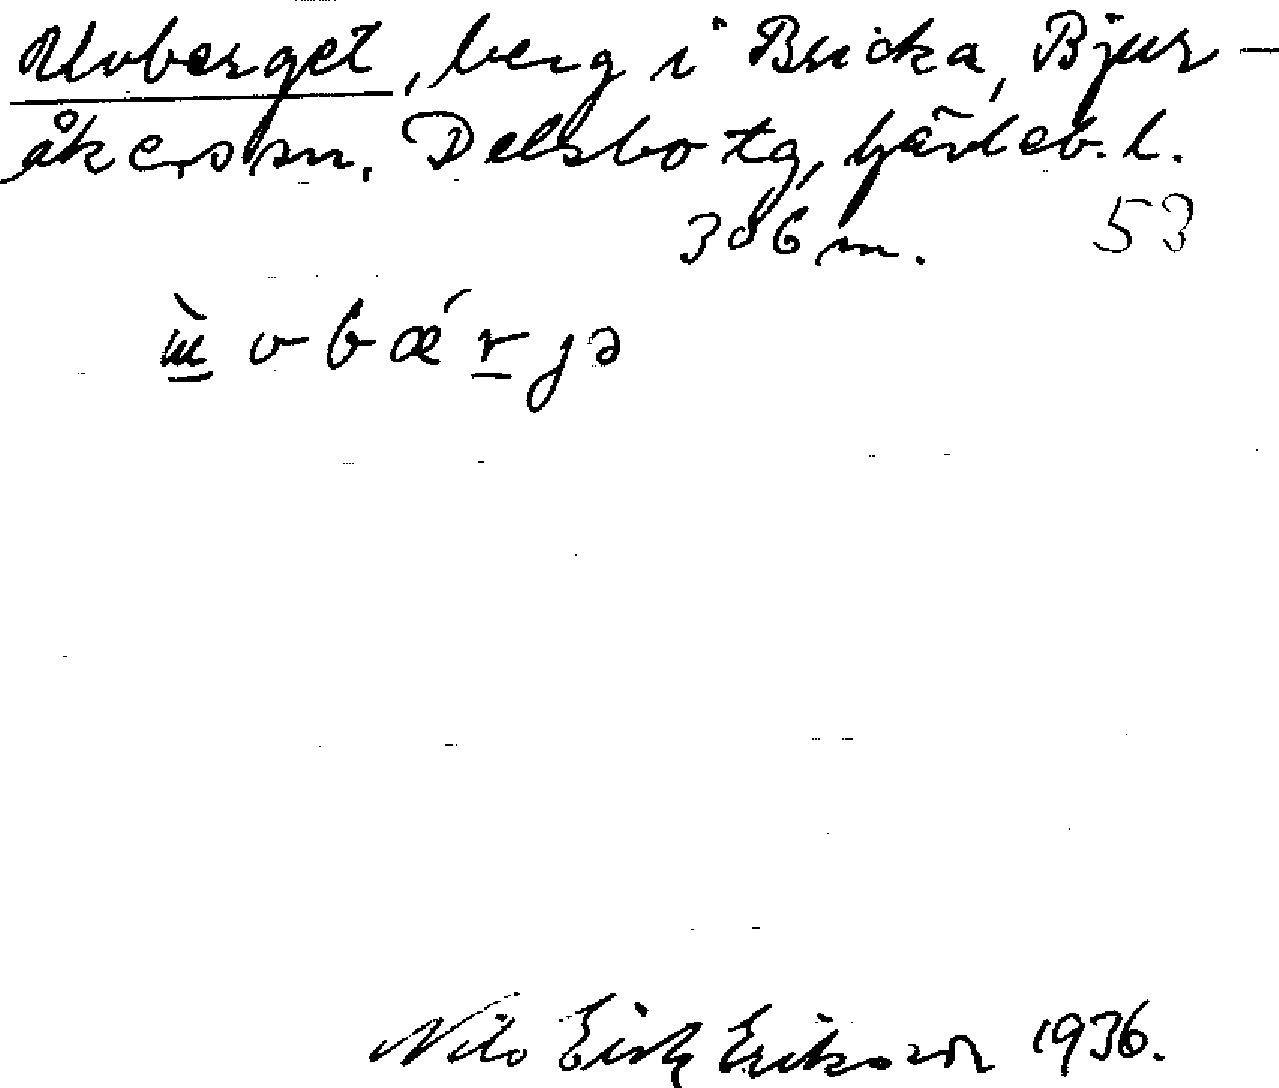 Ulvberget, berg i Bricka, Bjur-
åkers sn. Delsbo tg, Gävleb. l.
306 m. 53
ɯ̀vbǽrjə
Nils Erik Eriksson 1936.